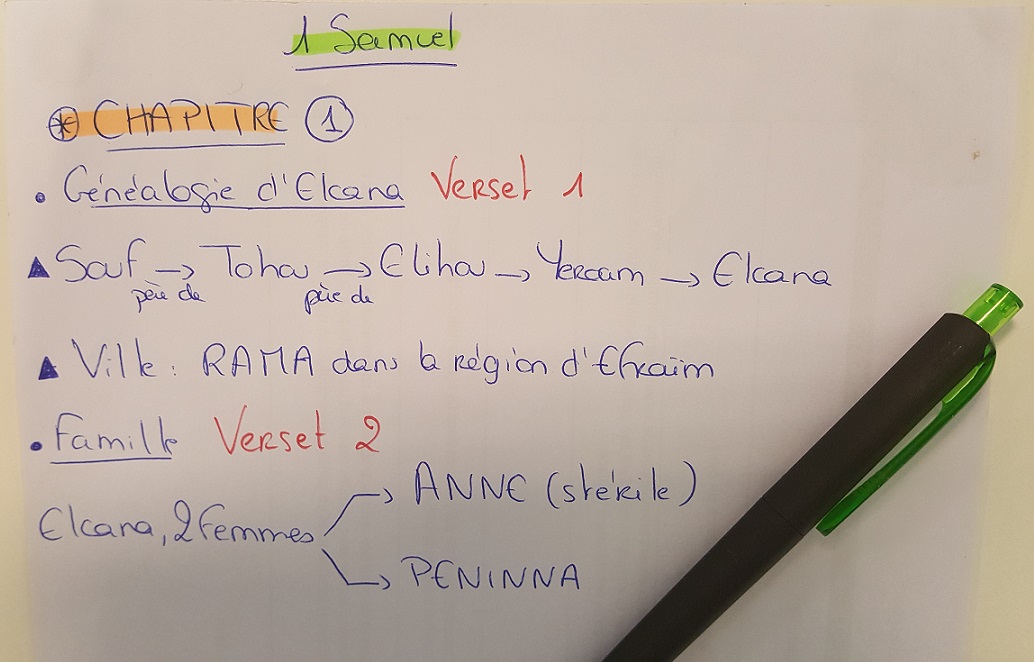 1 Samuel
* CHAPITRE 1
• Généalogie d'Elcana Verset 1
▲ Souf → Tohou → Elihou → Yeroam → Elcana
père de père de
▲ Ville : RAMA dans la région d'Efraïm
• Famille Verset 2
→ ANNE (stérile)
Elcana, 2 femmes
→ PENINNA